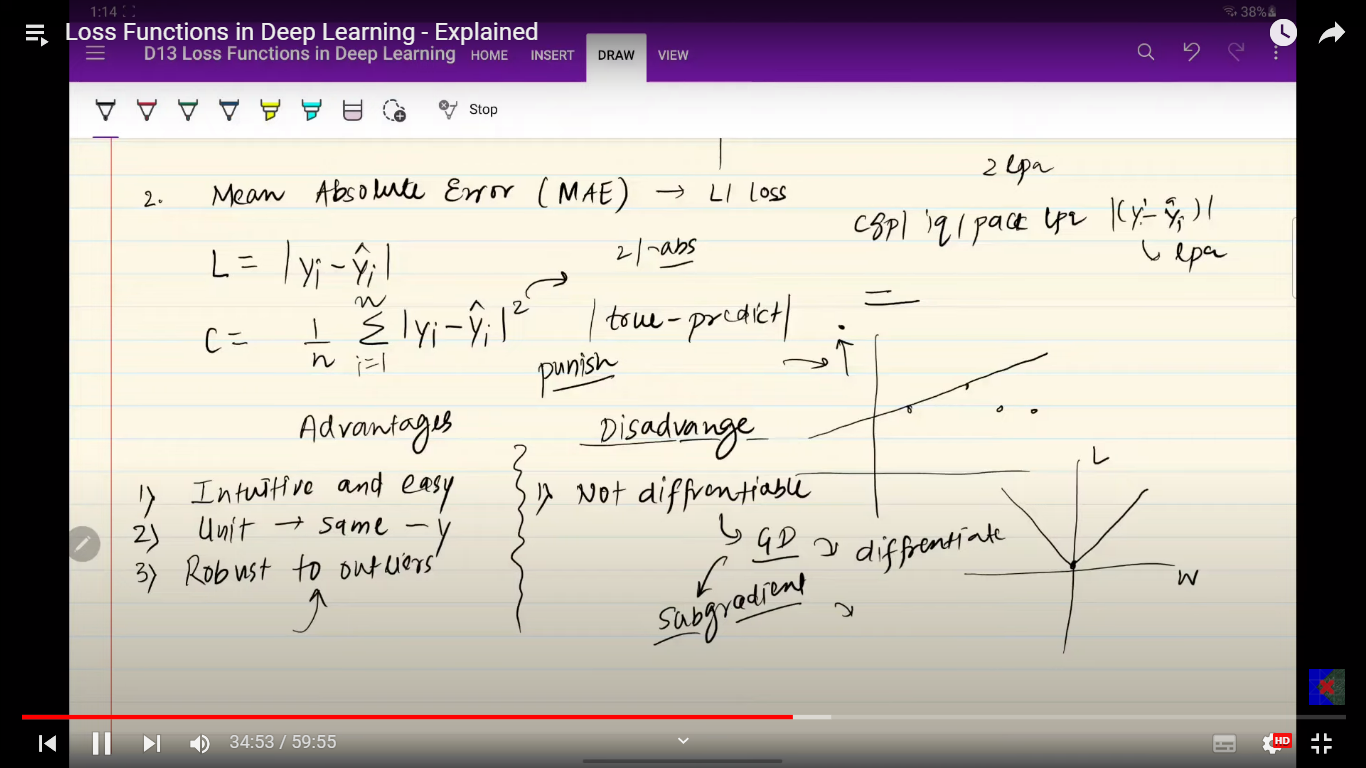 1:14
38%
Loss Functions in Deep Learning - Explained
D13 Loss Functions in Deep Learning HOME INSERT DRAW VIEW
Stop
2 lpa
2. Mean Absolute Error (MAE) → L1 loss
cgpa | iq | pack lpa |(yi - ŷi)|
↳ lpa
L = |yi - ŷi|
2 | -abs
C = 1/n n Σ i=1 |yi - ŷi|²
|true - predict|
punish
Advantages
Disadvange
1) Intuitive and easy
2) Unit → same - y
3) Robust to outliers
1) Not diffrentiable
↳ GD ↘ diffrentiate
Subgradient
L
W
34:53 / 59:55
HD